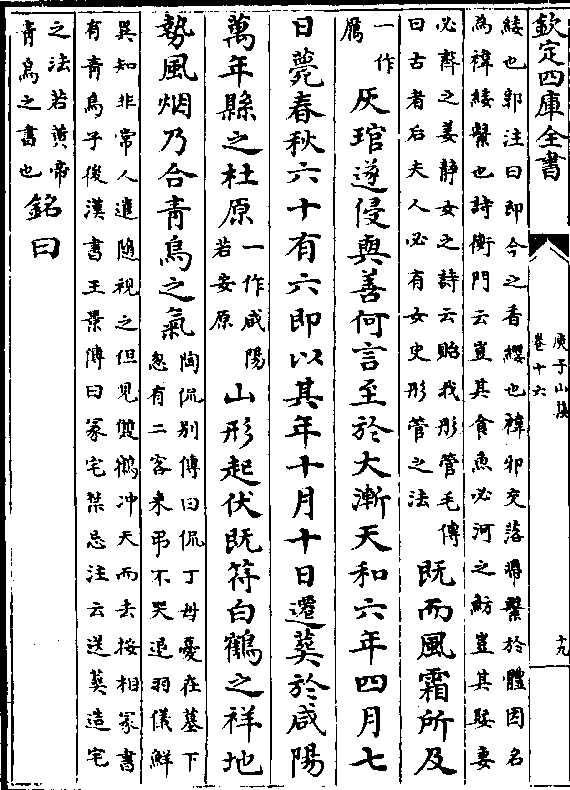 欽定四庫全書
庾子山集
卷十六
十九
緌也郭注曰即今之香纓也褘邪交落帶繫於體因名
為褘緌繫也詩衡門云豈其食魚必河之魴豈其娶妻
必齊之姜静女之詩云貽我彤管毛傳
曰古者后夫人必有女史彤管之法
既而風霜所及
一作
鴈
灰琯遂侵與善何言至於大漸天和六年四月七
日薨春秋六十有六即以其年十月十日遷葬於咸陽
萬年縣之杜原
一作咸陽
若安原
山形起伏既符白鶴之祥地
勢風烟乃合青烏之氣
陶侃别傳曰侃丁母憂在墓下
忽有二客来弔不哭退羽儀鮮
異知非常人遣随視之但見雙鶴冲天而去按相冢書
有青烏子後漢書王景傳曰冢宅禁忌注云送葬造宅
之法若黄帝
青烏之書也
銘曰